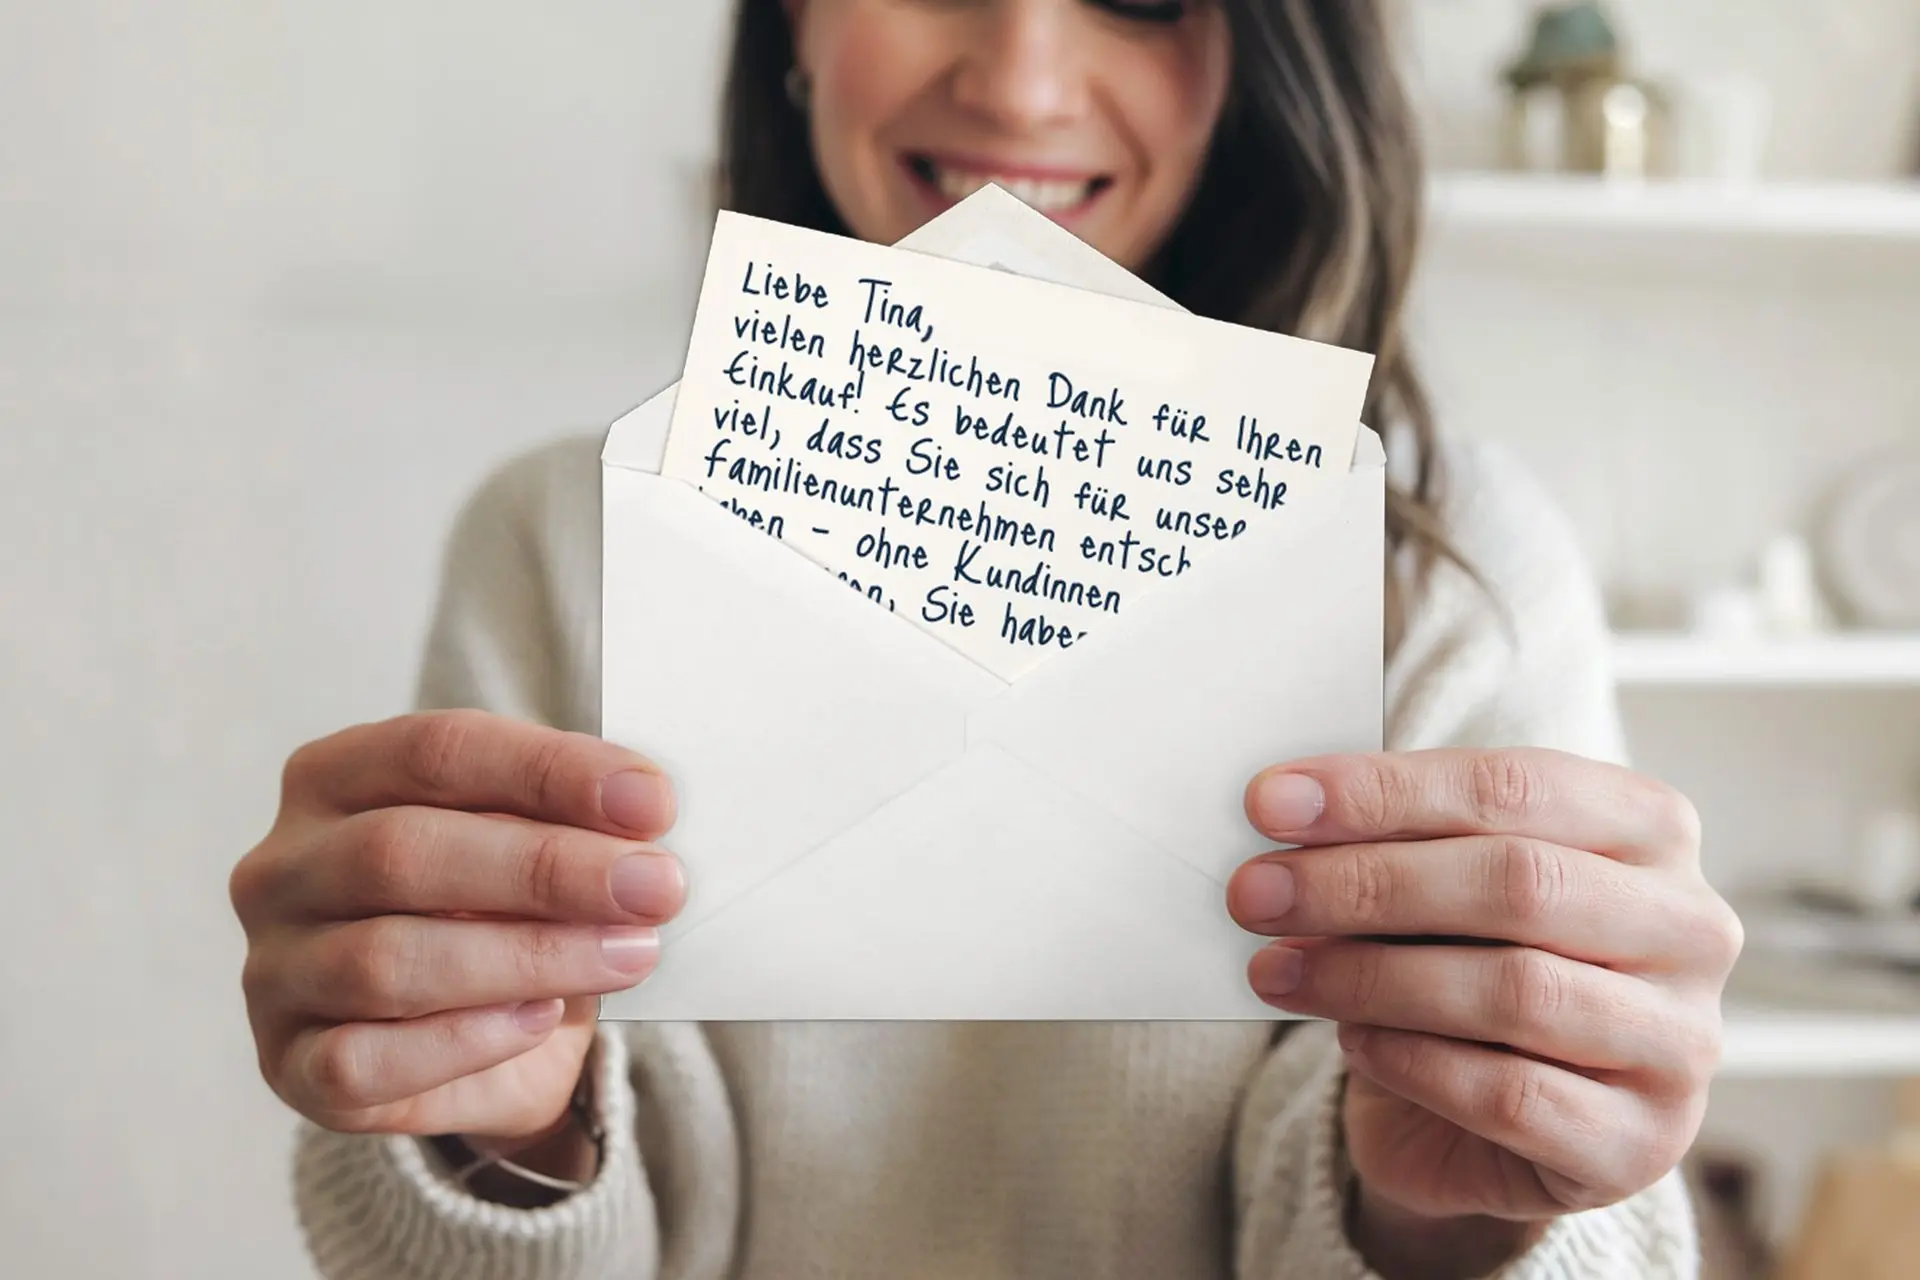 Liebe Tina,
vielen herzlichen Dank für Ihren
Einkauf! Es bedeutet uns sehr
viel, dass Sie sich für unser
Familienunternehmen
– ohne Kundinnen
Sie